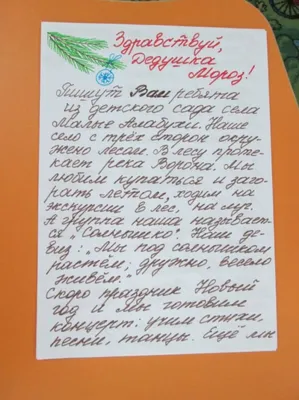 Здравствуй,
Дедушка
Мороз!
Пишут Вам ребята
из детского сада села
Малые Алабухи. Наше
село с трёх сторон окру-
жено лесом. В лесу проте-
кает река Ворона. Мы
любим купаться и заго-
рать летом, ходим
экскурсии в лес, на луг.
А группа наша называет-
ся „Солнышко". Наш де-
виз: „Мы под солнышком
растём; дружно, весело
живём."
Скоро праздник Новый
год и мы готовим
концерт: учим стихи,
песни, танцы. Ещё мы